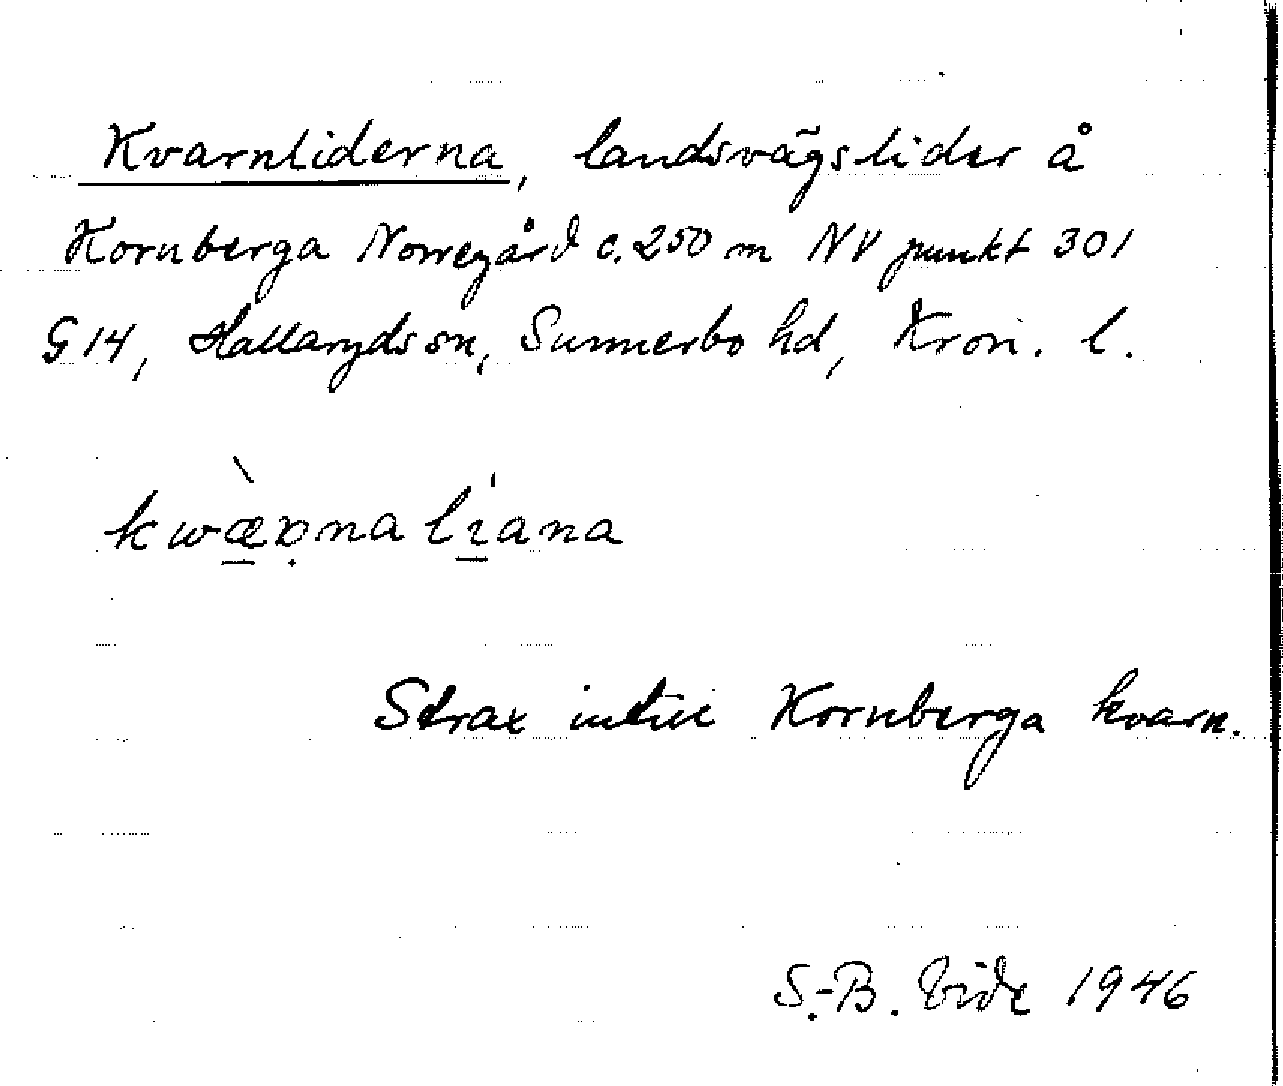 Kvarnliderna, landsvägslider å
Kornberga Norregård c. 250 m NV punkt 301
G 14, Hallaryds sn, Sunnerbo hd, Kron. l.
kwæ̀ɒ̣na li̍ana
Strax intill Kornberga kvarn.
S.-B. Vide 1946